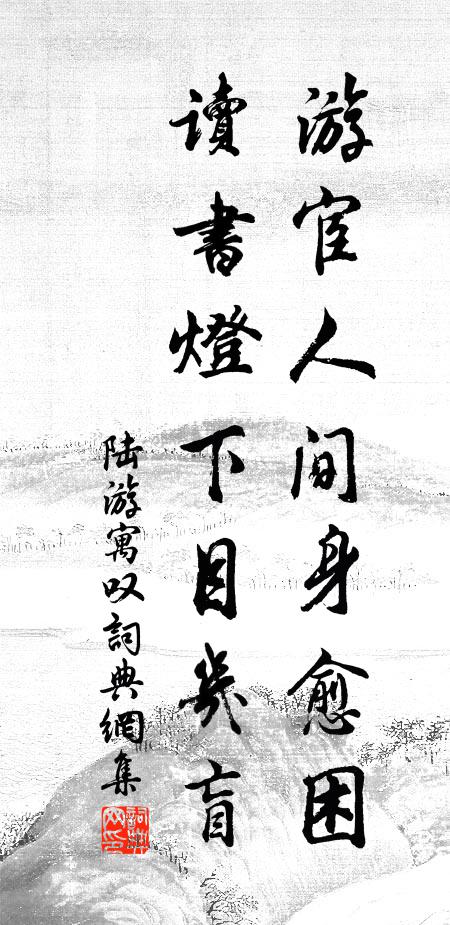 游宦人间身愈困
讀書燈下目幾盲
陆游寓叹詞典網集